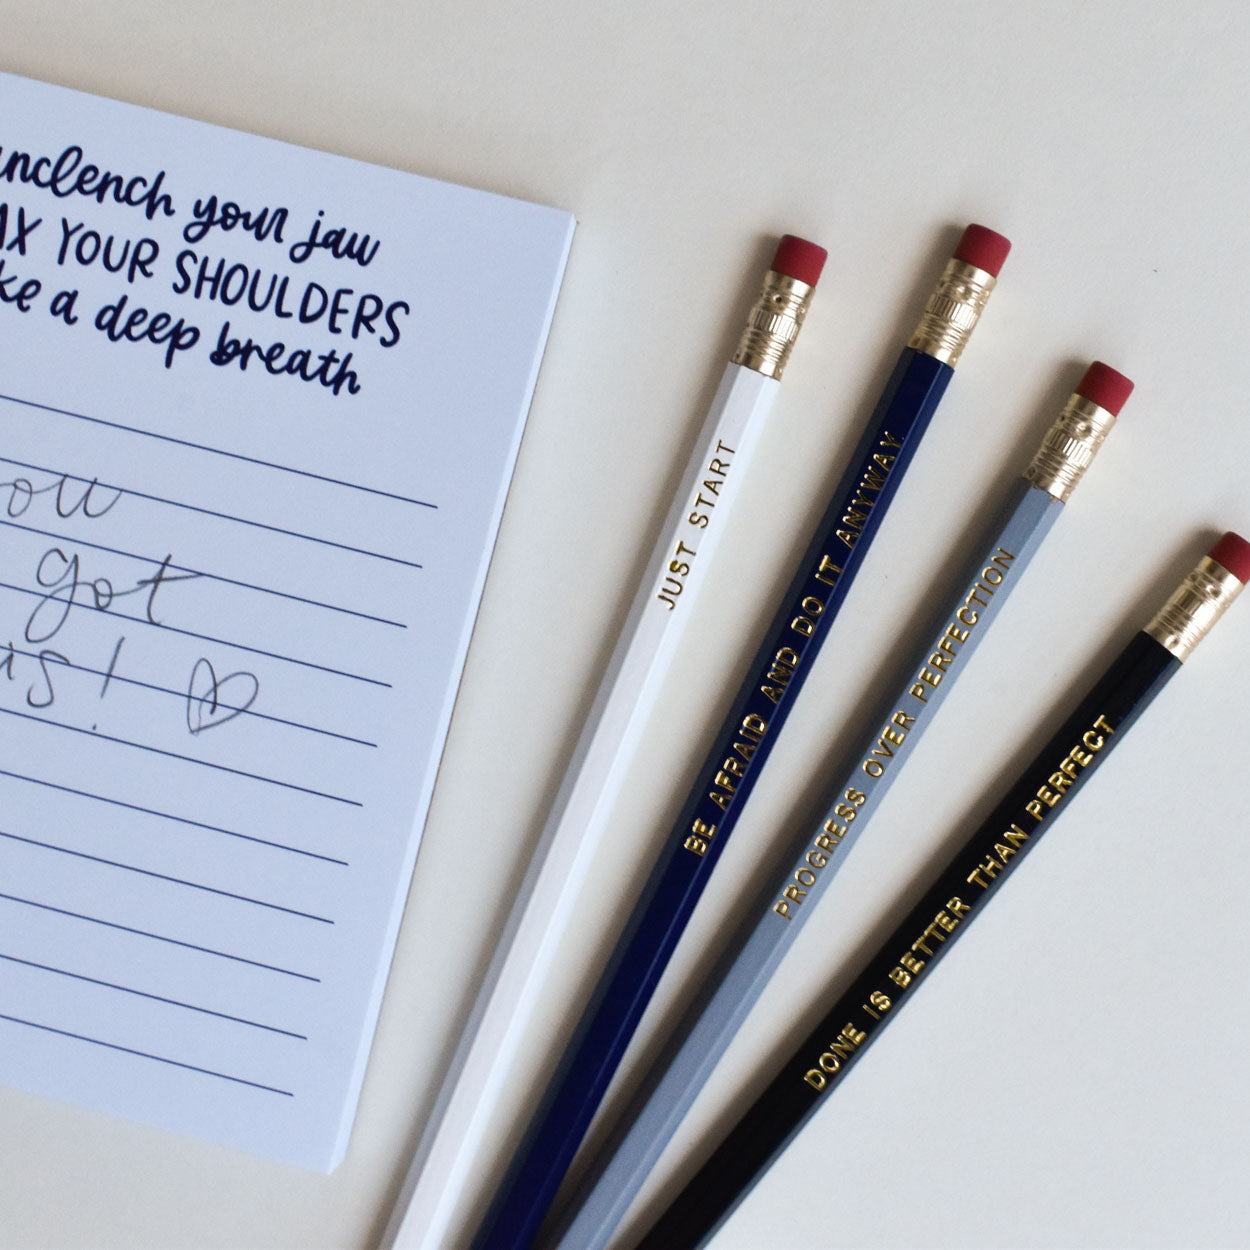 unclench your jaw
AX YOUR SHOULDERS
ke a deep breath
ou
got
is!
JUST START
BE AFRAID AND DO IT ANYWAY
PROGRESS OVER PERFECTION
DONE IS BETTER THAN PERFECT